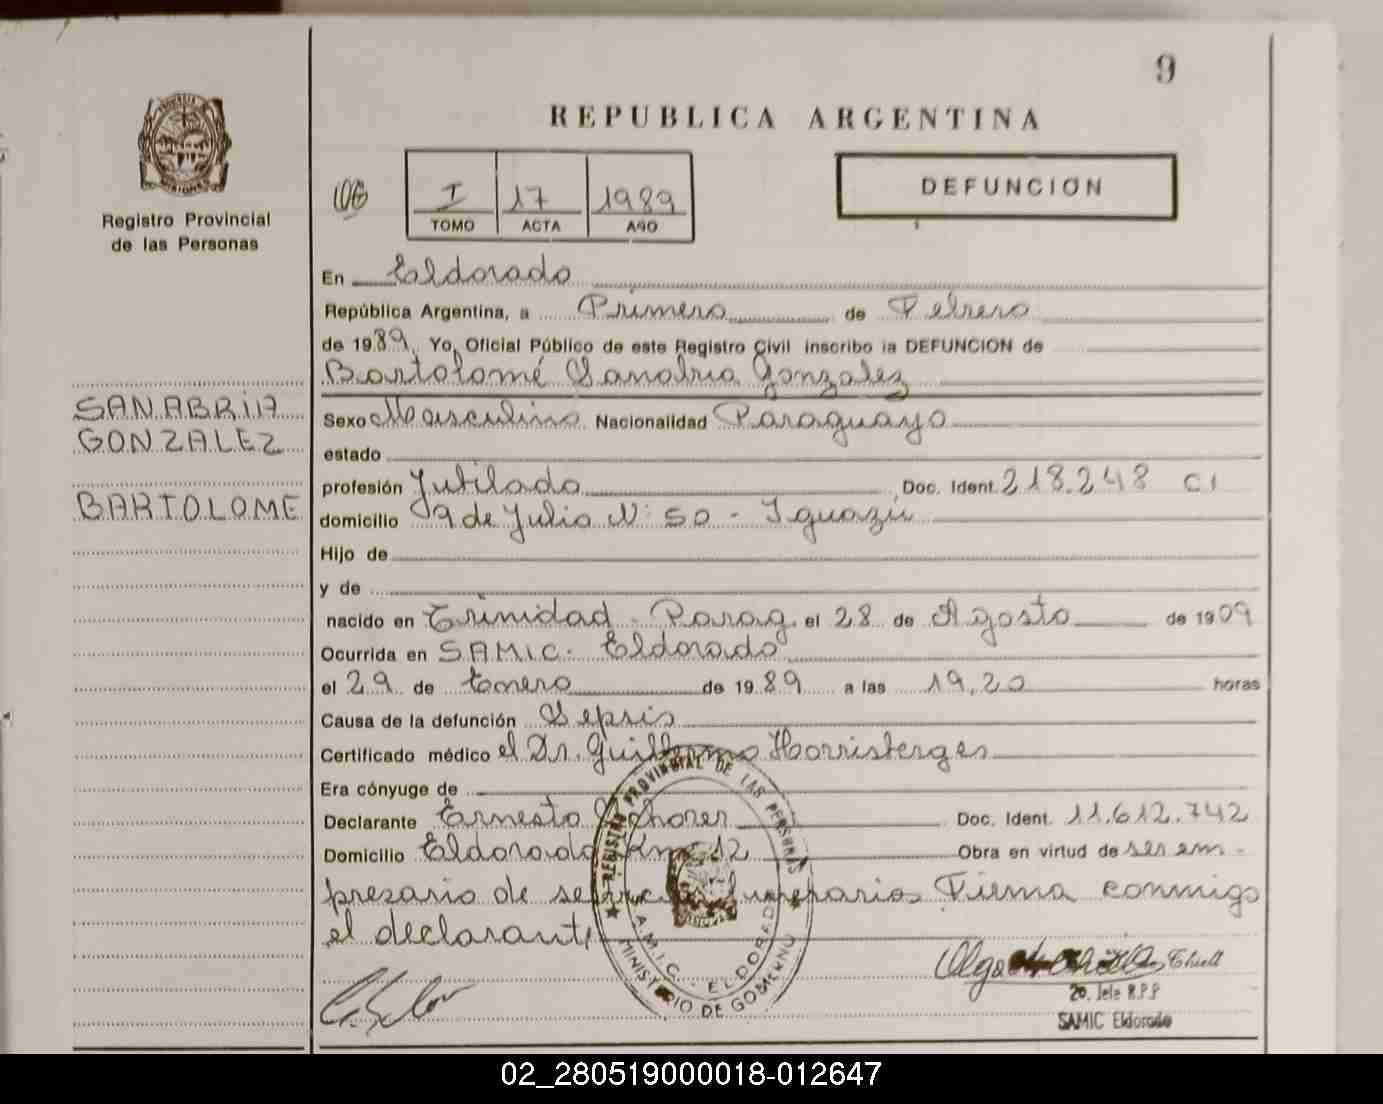 9
REPUBLICA ARGENTINA
Registro Provincial
de las Personas
I 17 1989
TOMO ACTA AÑO
DEFUNCION
En Eldorado
República Argentina, a Primero de Febrero
de 1989 Yo, Oficial Público de este Registro Civil inscribo la DEFUNCION de
Bartolomé Sanabria Gonzalez
SANABRIA
GONZALEZ
BARTOLOME
Sexo Masculino Nacionalidad Paraguayo
estado
profesión Jubilado Doc. Ident. 218.248 CI
domicilio 9 de Julio Nº 50 - Iguazú
Hijo de
y de
nacido en Trinidad - Parag. el 28 de Agosto de 1909
Ocurrida en SAMIC. Eldorado
el 29 de Enero de 1989 a las 19,20 horas
Causa de la defunción Sepsis
Certificado médico el Dr. Guillermo
Era cónyuge de
Declarante Ernesto Doc. Ident. 11.612.742
Domicilio Eldorado Km 12 Obra en virtud de ser em-
presario de servicios funerarios Firma conmigo
el declarante
REGISTRO PROVINCIAL DE LAS PERSONAS
S.A.M.I.C. - ELDORADO
MINISTERIO DE GOBIERNO
Olga Thiell
2o. Jefe R.P.P
SAMIC Eldorado
02_280519000018-012647